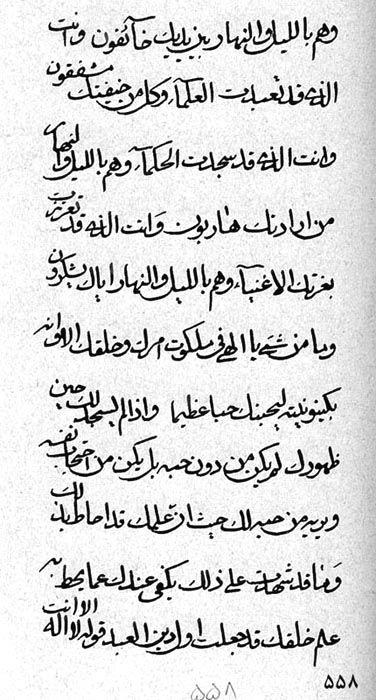 وهم بالليل والنهار بين يديك خائفون وانت
الذي قد تعبدت العلمآء وكل من خيفتك مشفقون
وانت الذي قد سجدت الحكمآء وهم بالليل والنهار
من ارادتك هاربون وانت الذي قد تعززت
بعزتك الاغنيآء وهم بالليل والنهار اياك يشكرون
وما من شيء يا الهي في ملكوت امرك وخلقك الا وانه
بكينونيته ليحبنك حبا عظيما واذا لم يسجد لك حين
ظهورك لم يكن من دون حبه بل يكن من احتجاب نفسه
ويريه من حبه لك حيث ان علمك قد احاط بذلك
وما قد شهدت على ذلك يكفى عندك عما يحط به
علم خلقك قد جعلت اول دين العبد قوله لا اله الا انت
۵۵۸
۵۵۸